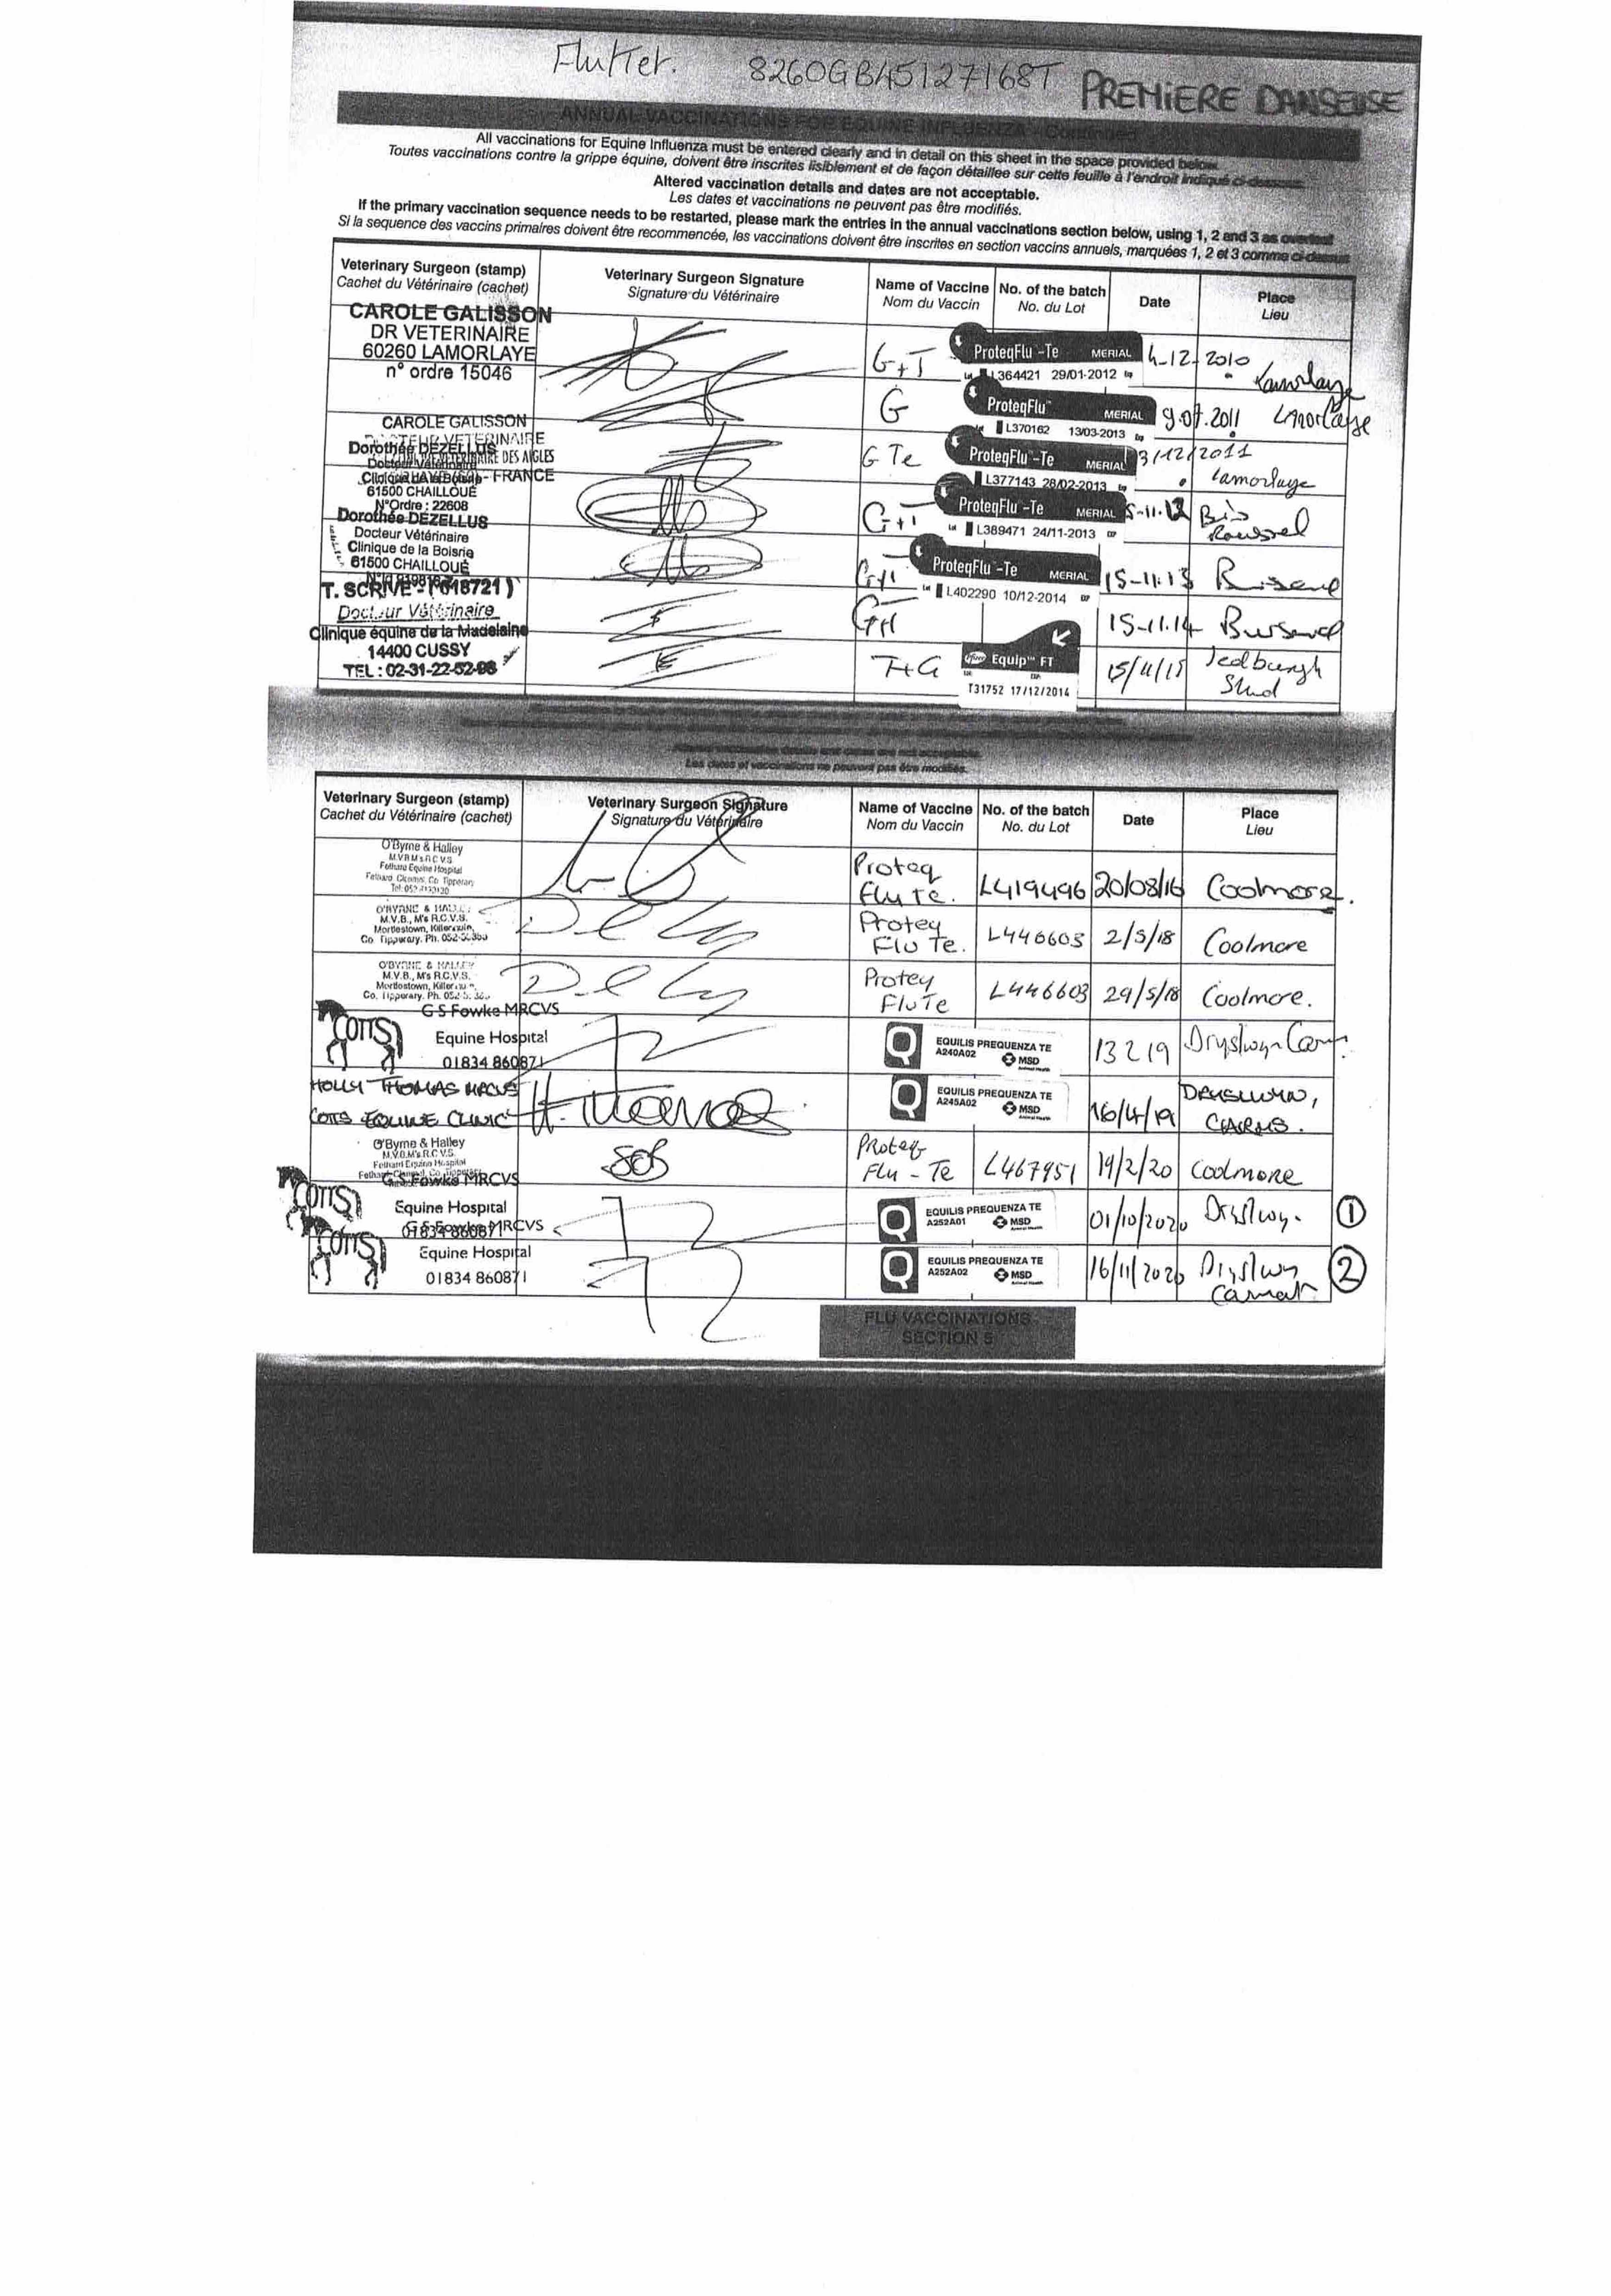 Flutter. 8260GB45127168T PREMIERE DANSEUSE
ANNUAL VACCINATIONS FOR EQUINE INFLUENZA - Continued
All vaccinations for Equine Influenza must be entered clearly and in detail on this sheet in the space provided below.
Toutes vaccinations contre la grippe équine, doivent être inscrites lisiblement et de façon détaillee sur cette feuille à l'endroit indiqué ci-dessous.
Altered vaccination details and dates are not acceptable.
Les dates et vaccinations ne peuvent pas être modifiés.
If the primary vaccination sequence needs to be restarted, please mark the entries in the annual vaccinations section below, using 1, 2 and 3 as overleaf
Si la sequence des vaccins primaires doivent être recommencée, les vaccinations doivent être inscrites en section vaccins annuels, marquées 1, 2 et 3 comme ci-dessus
Veterinary Surgeon (stamp) Veterinary Surgeon Signature Name of Vaccine No. of the batch Date Place
Cachet du Vétérinaire (cachet) Signature du Vétérinaire Nom du Vaccin No. du Lot Lieu
CAROLE GALISSON
DR VETERINAIRE
60260 LAMORLAYE
n° ordre 15046
G+T ProteqFlu-Te MERIAL 4-12-2010 Lamorlaye
L364421 29/01-2012
G ProteqFlu MERIAL 9.07.2011 Lamorlaye
L370162 13/03-2013
CAROLE GALISSON
DOCTEUR VETERINAIRE
G Te ProteqFlu-Te MERIAL 3/12/2011 Lamorlaye
L377143 28/02-2013
Dorothée DEZELLUS
Docteur Vétérinaire
Clinique de la Boisrie
61500 CHAILLOUÉ
N°Ordre : 22608
G+T ProteqFlu-Te MERIAL 5-11.12
L389471 24/11-2013
Dorothée DEZELLUS
Docteur Vétérinaire
Clinique de la Boisrie
61500 CHAILLOUÉ
ProteqFlu-Te MERIAL 15-11.13
L402290 10/12-2014
T. SCRIVE - (018721)
Docteur Vétérinaire
Clinique équine de la Madelaine
14400 CUSSY
TEL : 02-31-22-52-98
15-11.14
T+G Equip™ FT 15/11/15 Jedburgh Stud
T31752 17/12/2014
Altered vaccination details and dates are not acceptable.
Les dates et vaccinations ne peuvent pas être modifiés.
Veterinary Surgeon (stamp) Veterinary Surgeon Signature Name of Vaccine No. of the batch Date Place
Cachet du Vétérinaire (cachet) Signature du Vétérinaire Nom du Vaccin No. du Lot Lieu
O'Byrne & Halley
Proteq Flu Te. L419496 20/08/16 Coolmore.
O'BYRNE & HALLEY
M.V.B., M's R.C.V.S.
Proteq Flu Te. L446603 2/5/18 Coolmore
O'BYRNE & HALLEY
M.V.B., M's R.C.V.S.
Proteq FluTe L446603 29/5/18 Coolmore.
COTTS G S Fowke MRCVS
Equine Hospital
01834 860871
EQUILIS PREQUENZA TE A240A02 MSD Animal Health 13 2 19 Dryslwyn Carm.
HOLLY THOMAS MRCVS
COTTS EQUINE CLINIC
H. Thomas
EQUILIS PREQUENZA TE A245A02 MSD Animal Health 16/4/19 DRYSLWYN, CARMS.
O'Byrne & Halley
Proteq Flu - Te L467951 19/2/20 Coolmore
COTTS G S Fowke MRCVS
Equine Hospital
01834 860871
EQUILIS PREQUENZA TE A252A01 MSD Animal Health 01/10/2020 Dryslwyn. 1
COTTS G S Fowke MRCVS
Equine Hospital
01834 860871
EQUILIS PREQUENZA TE A252A02 MSD Animal Health 16/11/2020 Dryslwyn 2
FLU VACCINATIONS
SECTION 5